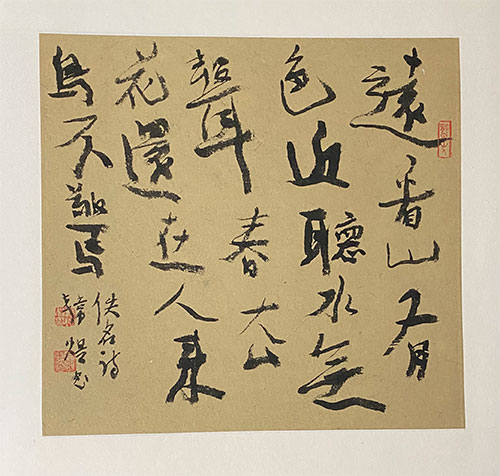 遠看山有
色近聽水無
聲春去
花還在人來
鳥不驚
佚名詩